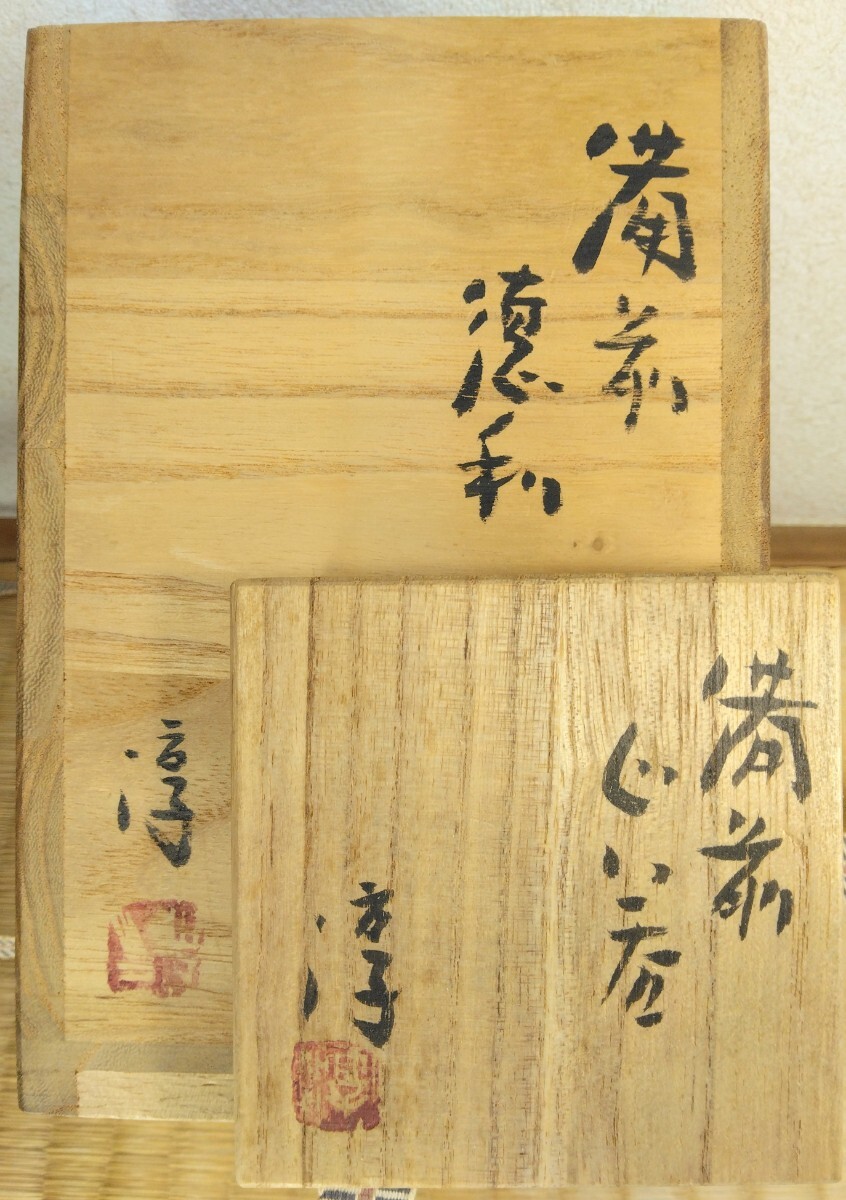 備前
徳利
淳
備前
ぐい呑
淳